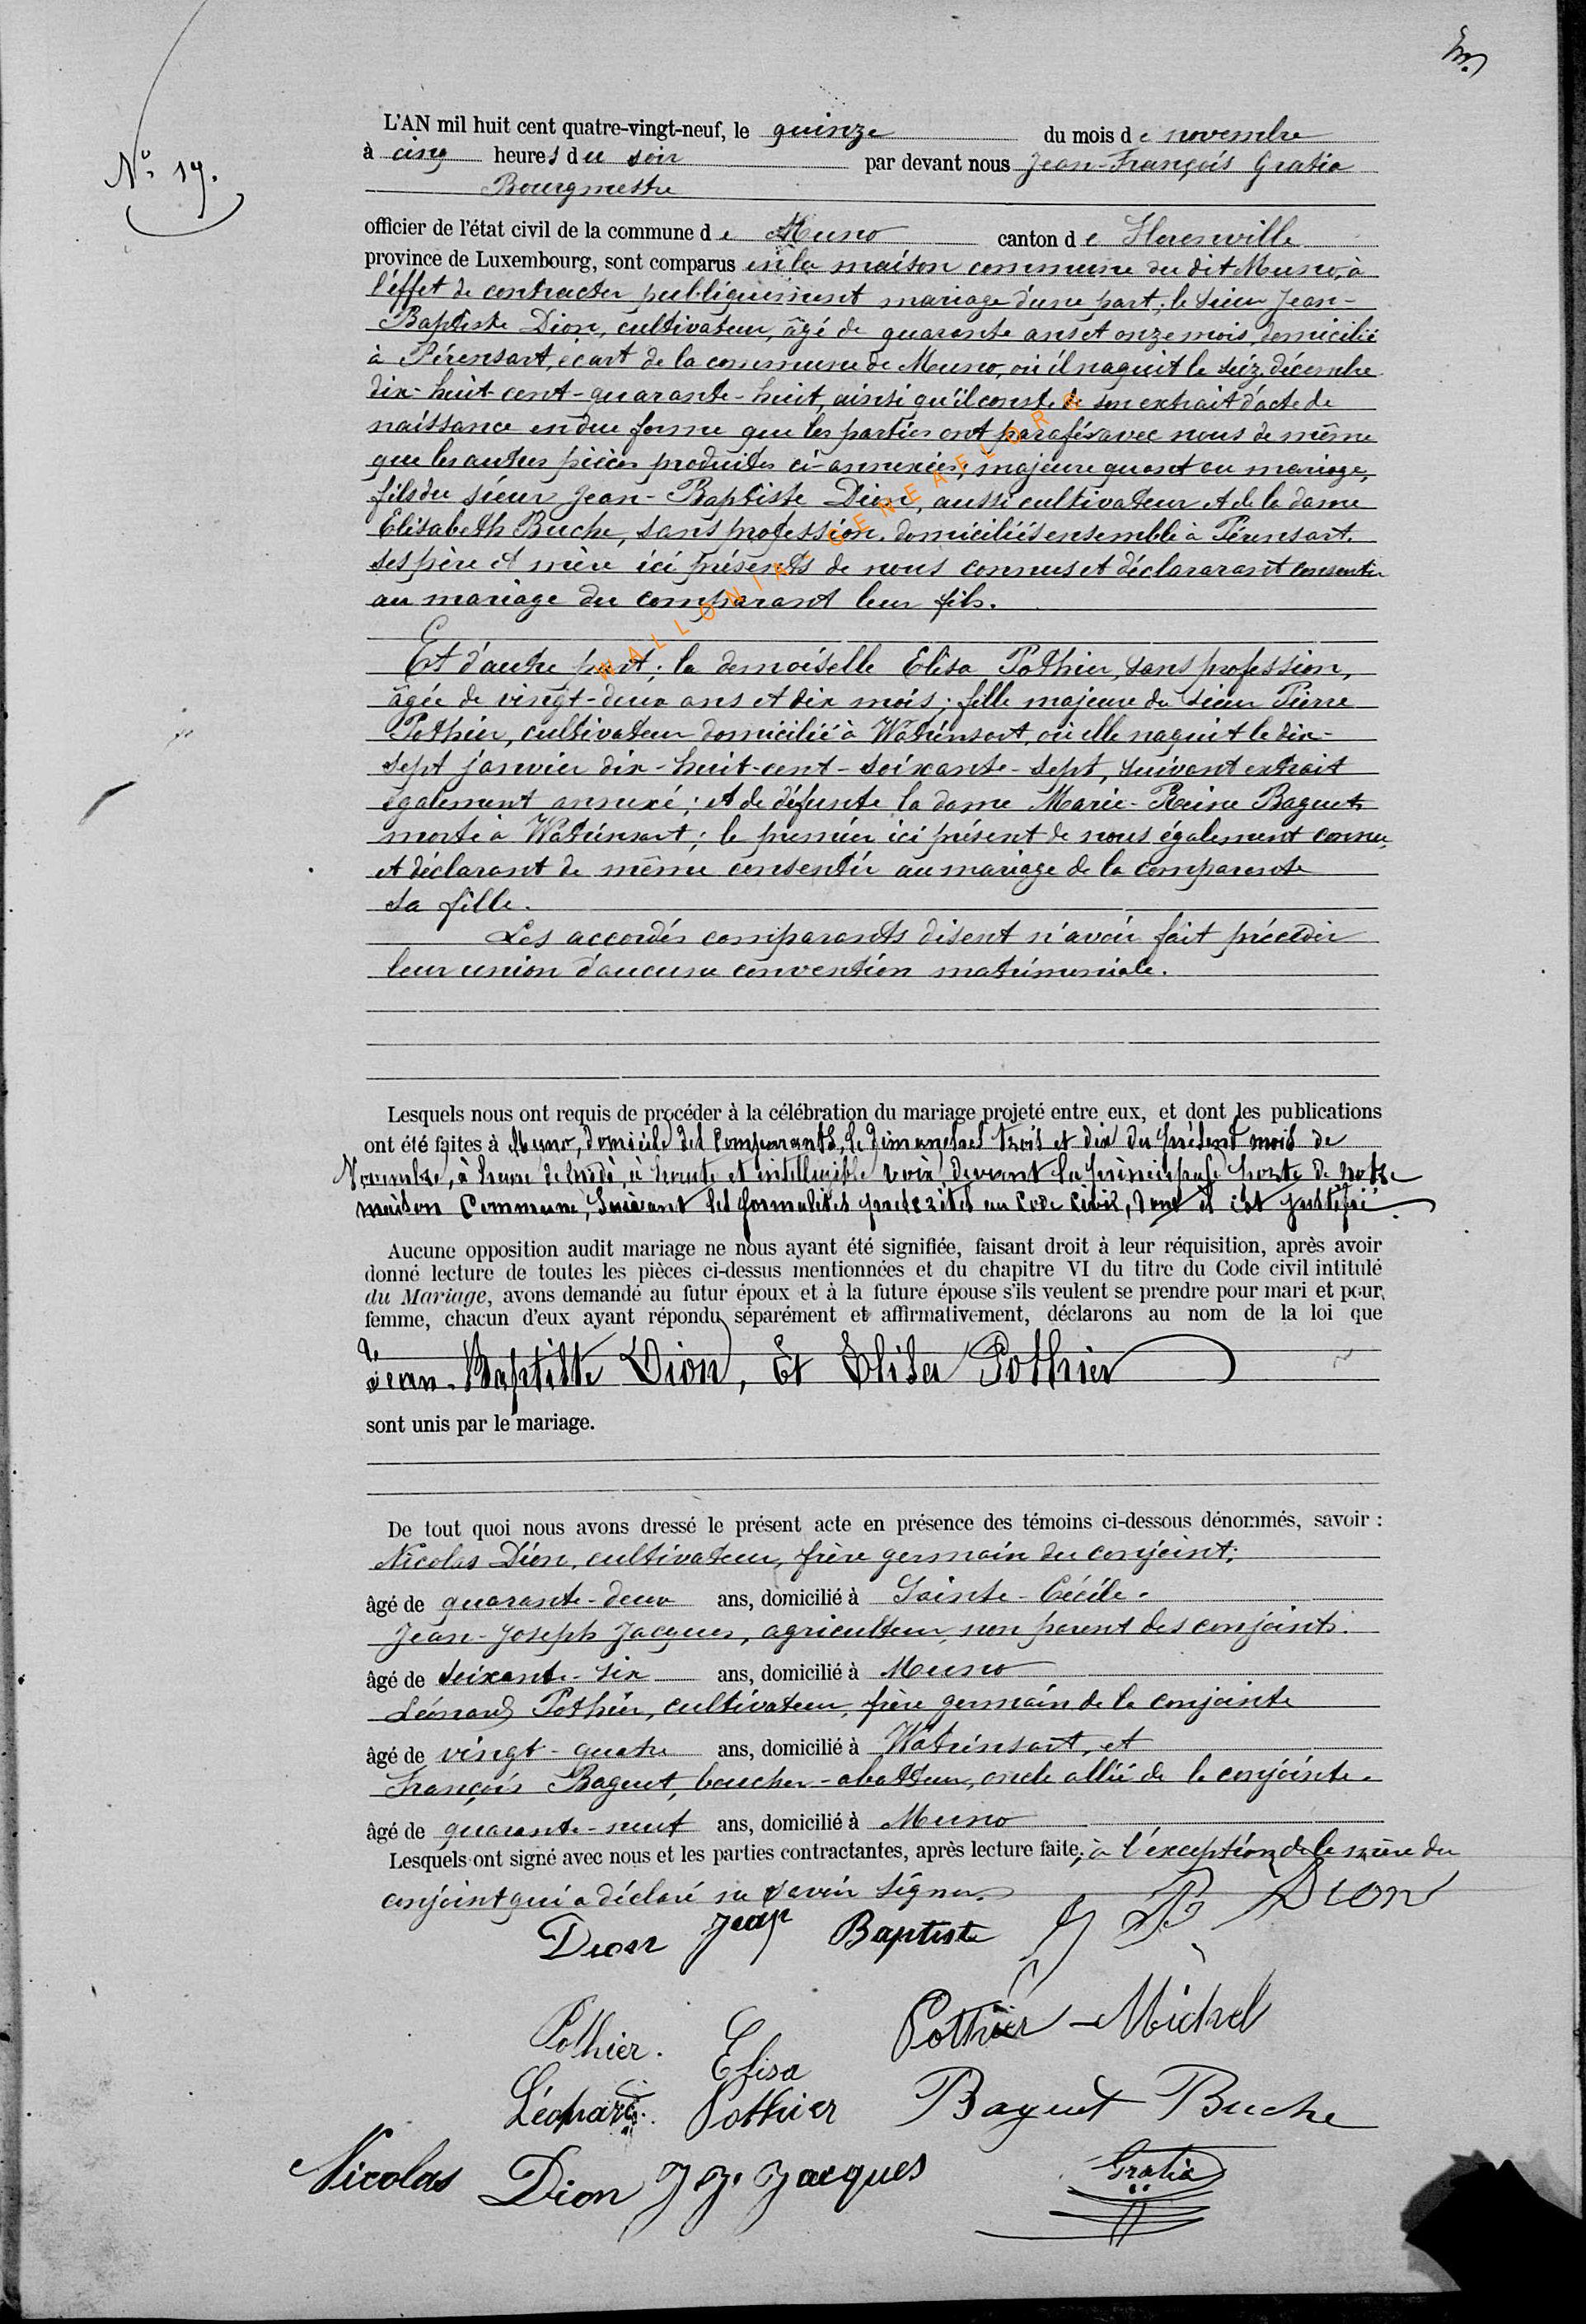 L'AN mil huit cent quatre-vingt-neuf, le quinze du mois de novembre
N° 19.
à cinq heures du soir par devant nous Jean-François Gratia
Bourgmestre
officier de l'état civil de la commune de Muno canton de Florenville
province de Luxembourg, sont comparus en la maison commune du dit Muno, à
l'effet de contracter publiquement mariage d'une part; le sieur Jean-
Baptiste Dion, cultivateur, âgé de quarante ans et onze mois, domicilié
à Pérensart, écart de la commune de Muno, où il naquit le seize décembre
dix-huit-cent-quarante-huit, ainsi qu'il conste de son extrait d'acte de
naissance en due forme que les parties ont parafés avec nous de même
que les autres pièces produites ci-annexées; majeure quant au mariage,
fils du sieur Jean-Baptiste Dion, aussi cultivateur et de la dame
Elisabeth Buche, sans profession, domiciliés ensemble à Pérensart.
ses père et mère ici présents de nous connus et déclararant consentir
au mariage du comparant leur fils.
WALLONIA GENEAELORG
Et d'autre part; la demoiselle Elisa Pothier, sans profession,
âgée de vingt-deux ans et dix mois; fille majeure du sieur Pierre
Pothier, cultivateur domicilié à Watrinsart, où elle naquit le dix-
sept janvier dix-huit-cent-soixante-sept, suivant extrait
également annexé; et de défunte la dame Marie-Reine Baguet
morte à Watrinsart; le premier ici présent de nous également connu,
et déclarant de même consentir au mariage de la comparante
sa fille.
Les accordés comparants disent n'avoir fait précéder
leur union d'aucune convention matrimoniale.
Lesquels nous ont requis de procéder à la célébration du mariage projeté entre eux, et dont les publications
ont été faites à Muno, domicile des Comparants, le dimanches trois et dix du présent mois de
Novembre, à heure de midi, à haute et intelligible voix, devant la principale porte de notre
maison Commune, suivant les formalités prescrites au Code Civil, dont il est justifié.
Aucune opposition audit mariage ne nous ayant été signifiée, faisant droit à leur réquisition, après avoir
donné lecture de toutes les pièces ci-dessus mentionnées et du chapitre VI du titre du Code civil intitulé
du Mariage, avons demandé au futur époux et à la future épouse s'ils veulent se prendre pour mari et pour
femme, chacun d'eux ayant répondu séparément et affirmativement, déclarons au nom de la loi que
Jean-Baptiste Dion, Et Elisa Pothier
sont unis par le mariage.
De tout quoi nous avons dressé le présent acte en présence des témoins ci-dessous dénommés, savoir :
Nicolas Dion, cultivateur, frère germain du conjoint;
âgé de quarante-deux ans, domicilié à Sainte-Cécile.
Jean-Joseph Jacques, agriculteur, non parent des conjoints.
âgé de soixante-six ans, domicilié à Muno
Léonard Pothier, cultivateur, frère germain de la conjointe
âgé de vingt-quatre ans, domicilié à Watrinsart, et
François Baguet, boucher-abatteur, oncle allié de la conjointe.
âgé de quarante-neuf ans, domicilié à Muno
Lesquels ont signé avec nous et les parties contractantes, après lecture faite; à l'exception de la mère du
conjoint qui a déclaré ne savoir signer.
Dion Jean Baptiste J B Dion
Pothier. Elisa Pothier-Michel
Léonard. Pothier Baguet Buche
Nicolas Dion J. J. Jacques Gratia